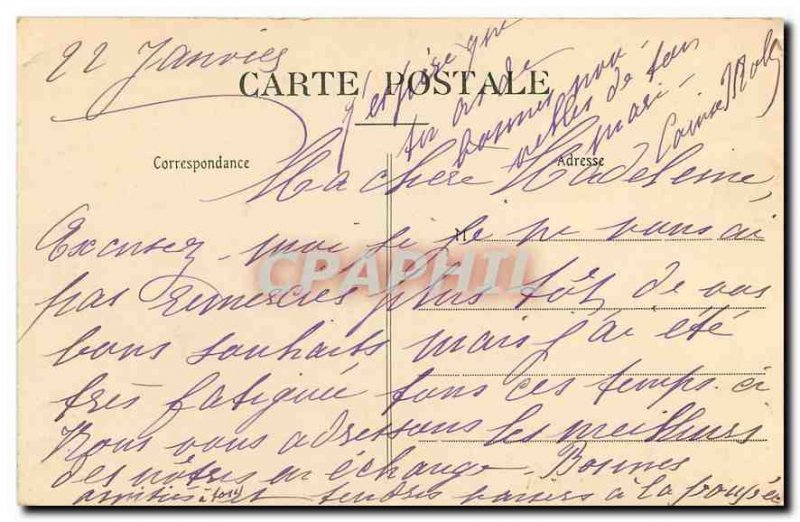 22 Janvier
CARTE POSTALE
Correspondance
Adresse
Ma chère Madeleine,
M
Excusez-moi si je ne vous ai
CPAPHIL
pas remercié plus tôt de vos
bons souhaits mais j'ai été
très fatiguée tous ces temps-ci
Nous vous adressons les meilleurs
des nôtres en échange. Bonnes
amitiés à tous et tendres baisers à la poupée
J'espère que
tu as de
bonnes nou-
velles de ton
mari -